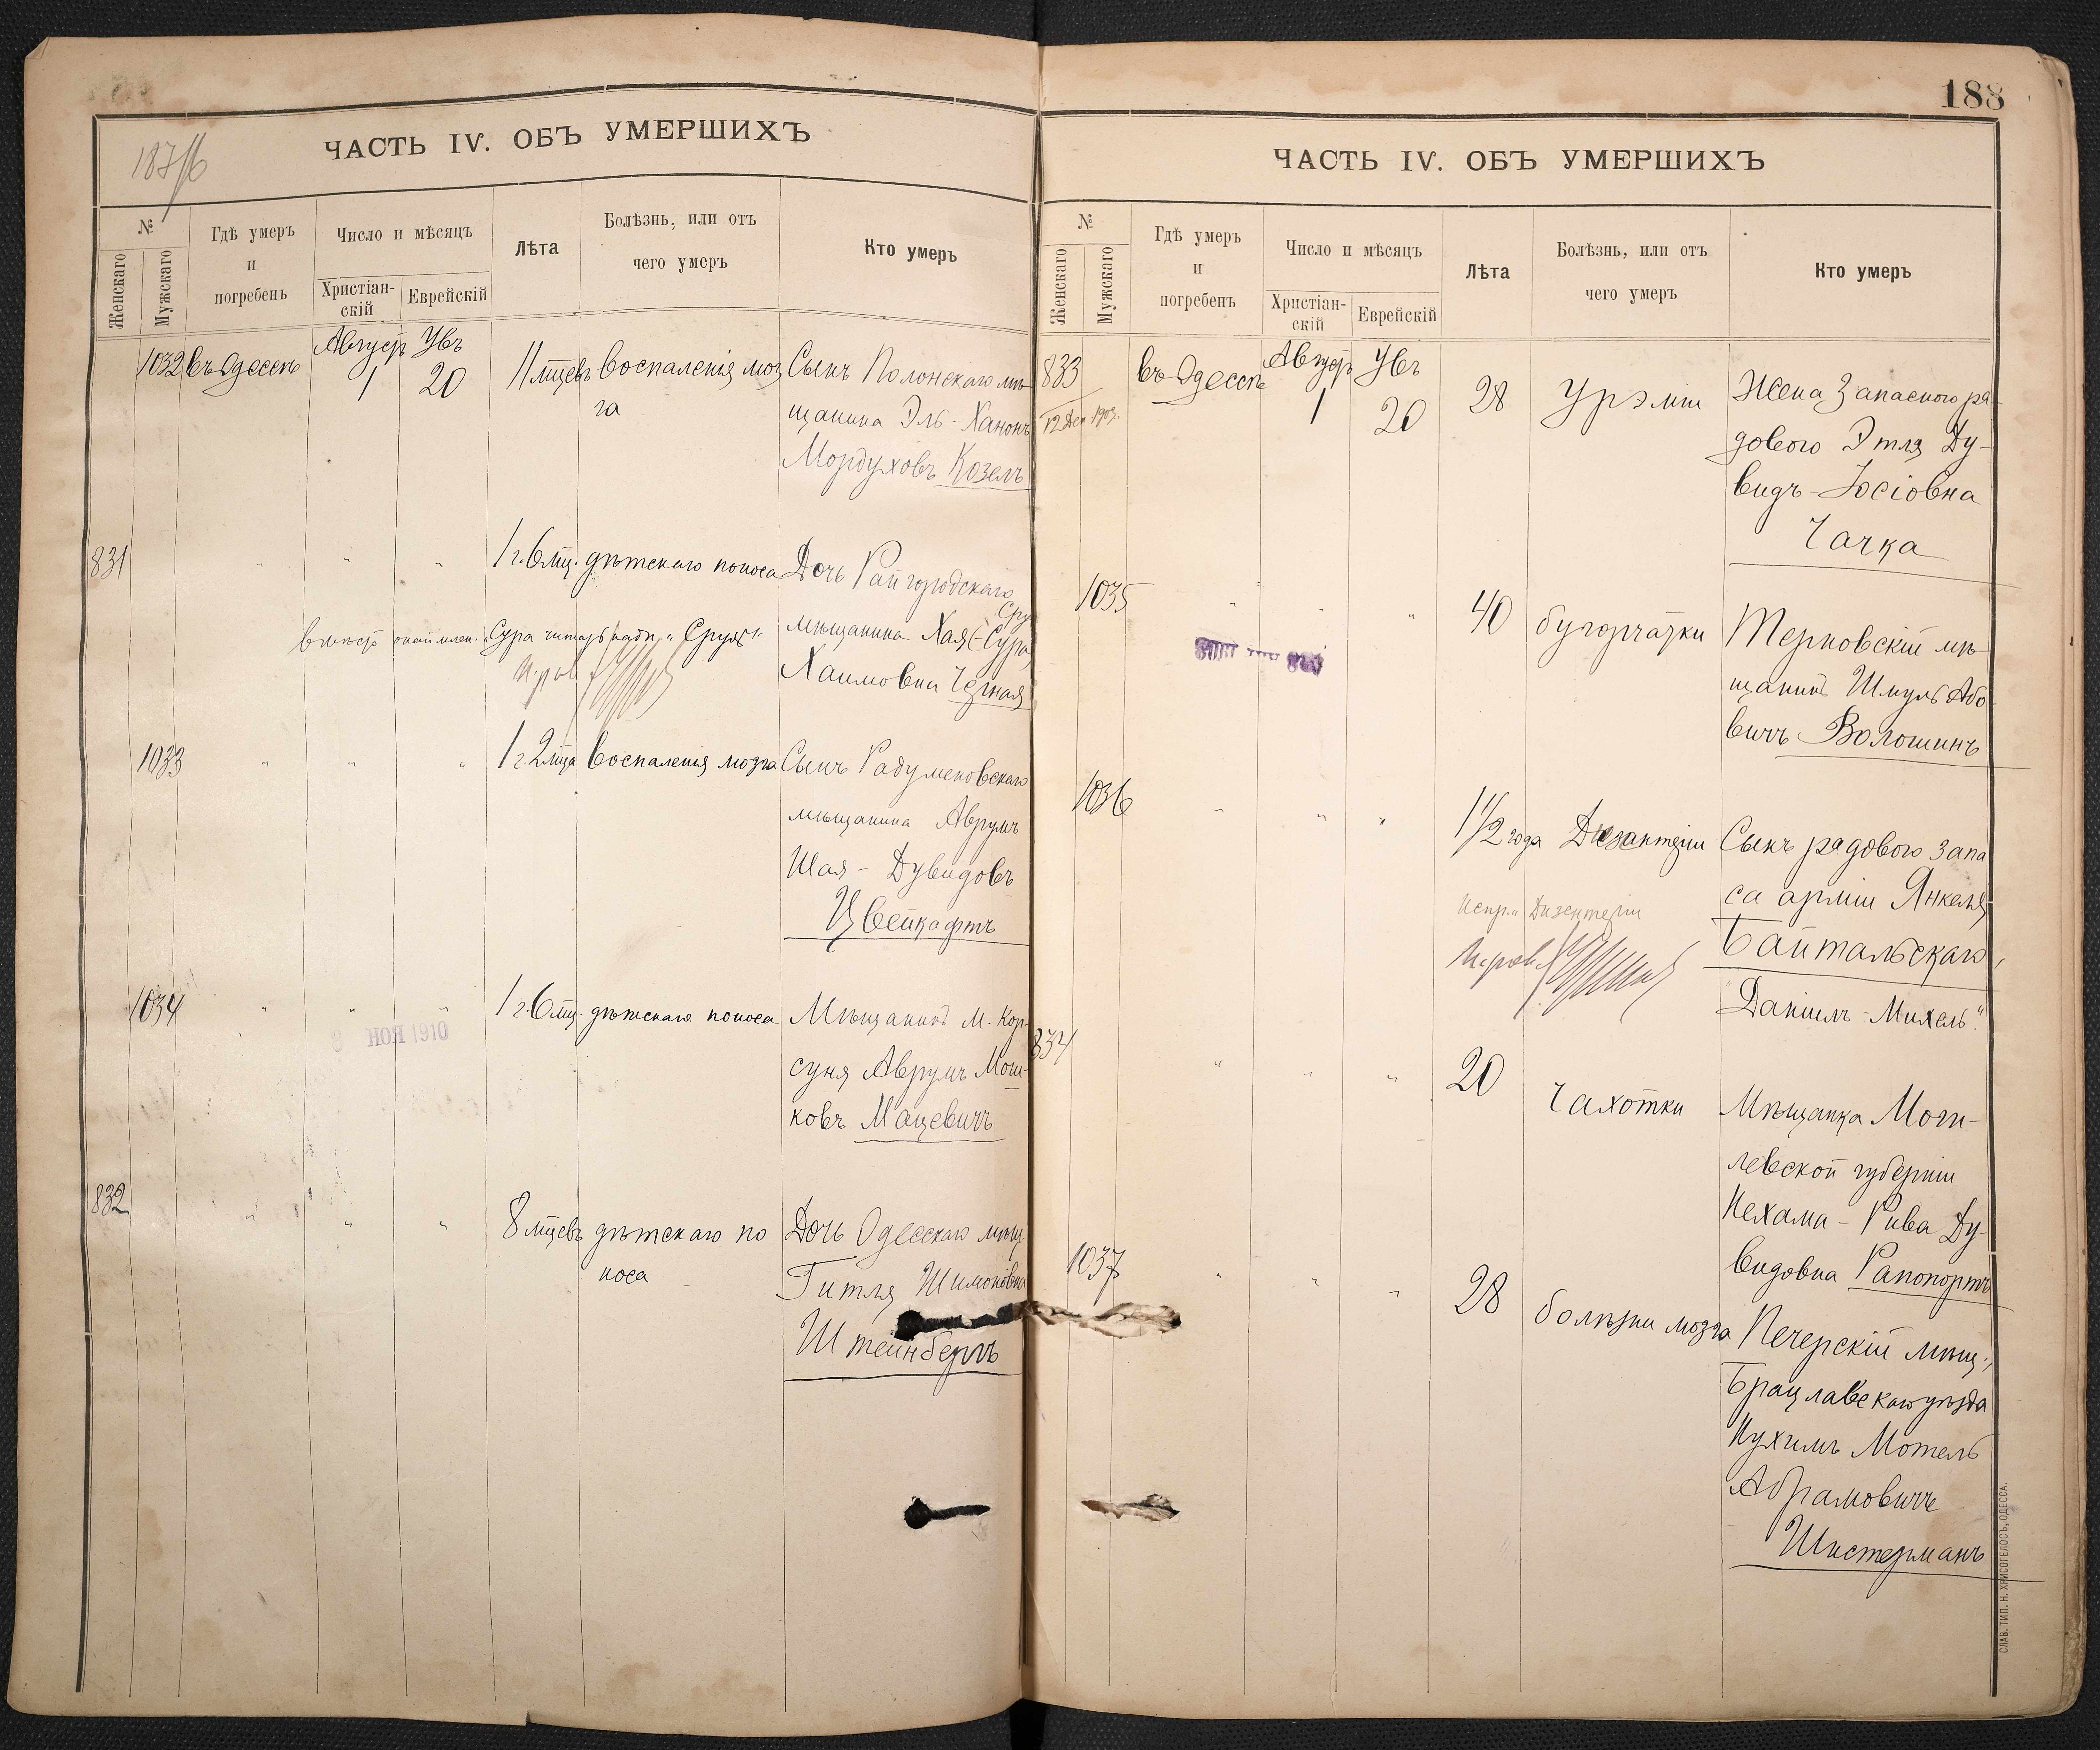 187/6
ЧАСТЬ IV. ОБЪ УМЕРШИХЪ
№
Женскаго
Мужскаго
Гдѣ умеръ
и
погребенъ
Число и мѣсяцъ
Христіан-
скій
Еврейскій
Лѣта
Болѣзнь, или отъ
чего умеръ
Кто умеръ
1032 въ Одессѣ Август 1 Увъ 20 11 мцевъ Воспаленія моз
га
Сынъ Полонскаго мѣ-
щанина Эль-Ханонъ
Мордуховъ Козелъ
831 " " " 1 г. 6 мц. дѣтскаго поноса
Дочь Райгородскаго
Сру
мѣщанина Хая (-Сура)
Хаимовни Черная
вмѣсто "Сура читать надп. "Сруля".
1033 " " " 1 г. 2 мца Воспаленія мозга
Сынъ Радумсковскаго
мѣщанина Аврумъ
Шая - Дувидовъ
Цвейкафтъ
1034 " " " 1 г. 6 мц. дѣтскаго поноса
НОЯ 1910
Мѣщанинъ м. Кор-
суня Аврумъ Мош-
ковъ Мацевичъ
832 " " " 8 мцевъ дѣтскаго по
носа
Дочь Одесскаго мѣщ.
Гитля Шимоновна
Штейнбергъ
188
ЧАСТЬ IV. ОБЪ УМЕРШИХЪ
№
Женскаго
Мужскаго
Гдѣ умеръ
и
погребенъ
Число и мѣсяцъ
Христіан-
скій
Еврейскій
Лѣта
Болѣзнь, или отъ
чего умеръ
Кто умеръ
833 въ Одессѣ Август 1 Увъ 20 28 Урэміи
12 Дек 1903.
Жена Запасного ря-
дового Этля Ду-
видъ-Іосіовна
Чачка
1035 " " " 40 бугорчатки
Терновскій мѣ-
щанинъ Шмуль Або
вичъ Волошинъ
1036 " " " 1 1/2 года Дизантеріи
Испр. "Дизентеріи
Сынъ рядового запа
са арміи Янкеля
Байтальскаго,
"Даніилъ-Михель".
834 " " " 20 Чахотки
Мѣщанка Моги-
левской губерніи
Нехама - Рива Ду-
видовна Рапопортъ
1037 " " " 28 болѣзни мозга
Печерскій мѣщ.,
Брацлавскаго уѣзда
Нухимъ Мотель
Абрамовичъ
Шистерманъ
СЛАВ. ТИП. Н. ХРИСОГЕЛОСЪ, ОДЕССА.